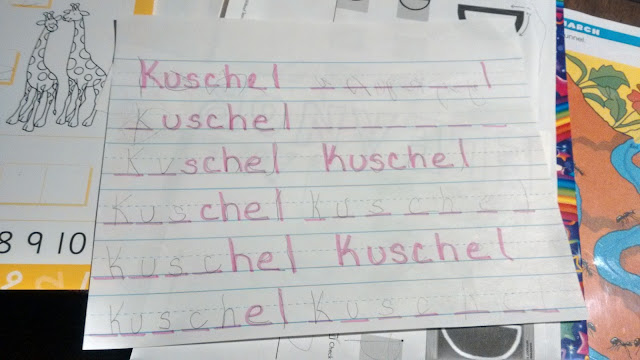 MARCH
Kuschel
Kuschel
Kuschel Kuschel
Kuschel Kuschel
8 9 10
Kuschel Kuschel
Kuschel Kuschel
Check